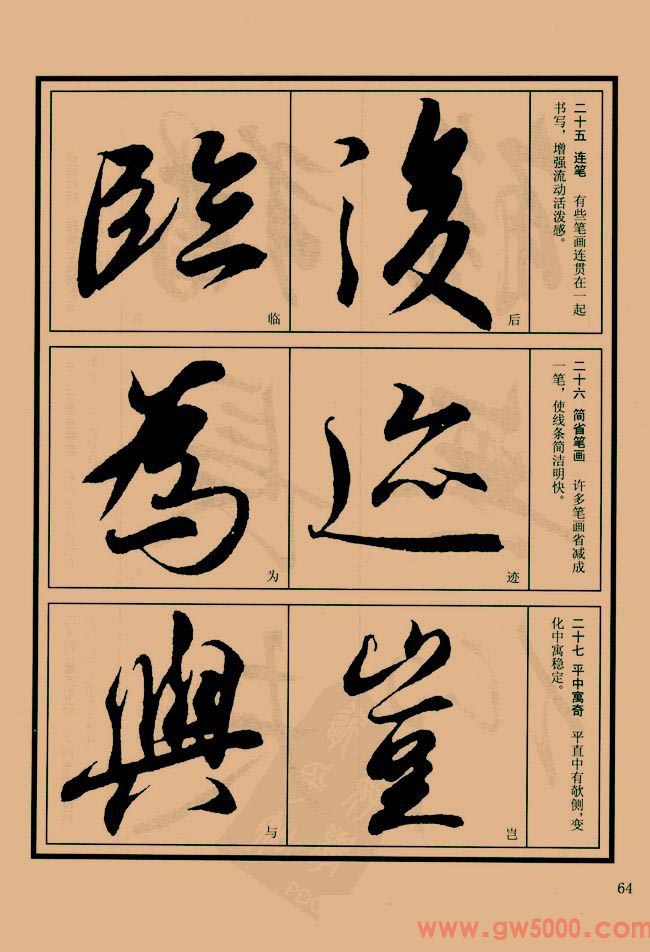 二十五 连笔 有些笔画连贯在一起
书写，增强流动活泼感。
後
后
臨
临
二十六 简省笔画 许多笔画省减成
一笔，使线条简洁明快。
迹
迹
為
为
二十七 平中寓奇 平直中有欹侧，变
化中寓稳定。
豈
岂
與
与
64
www.gw5000.com